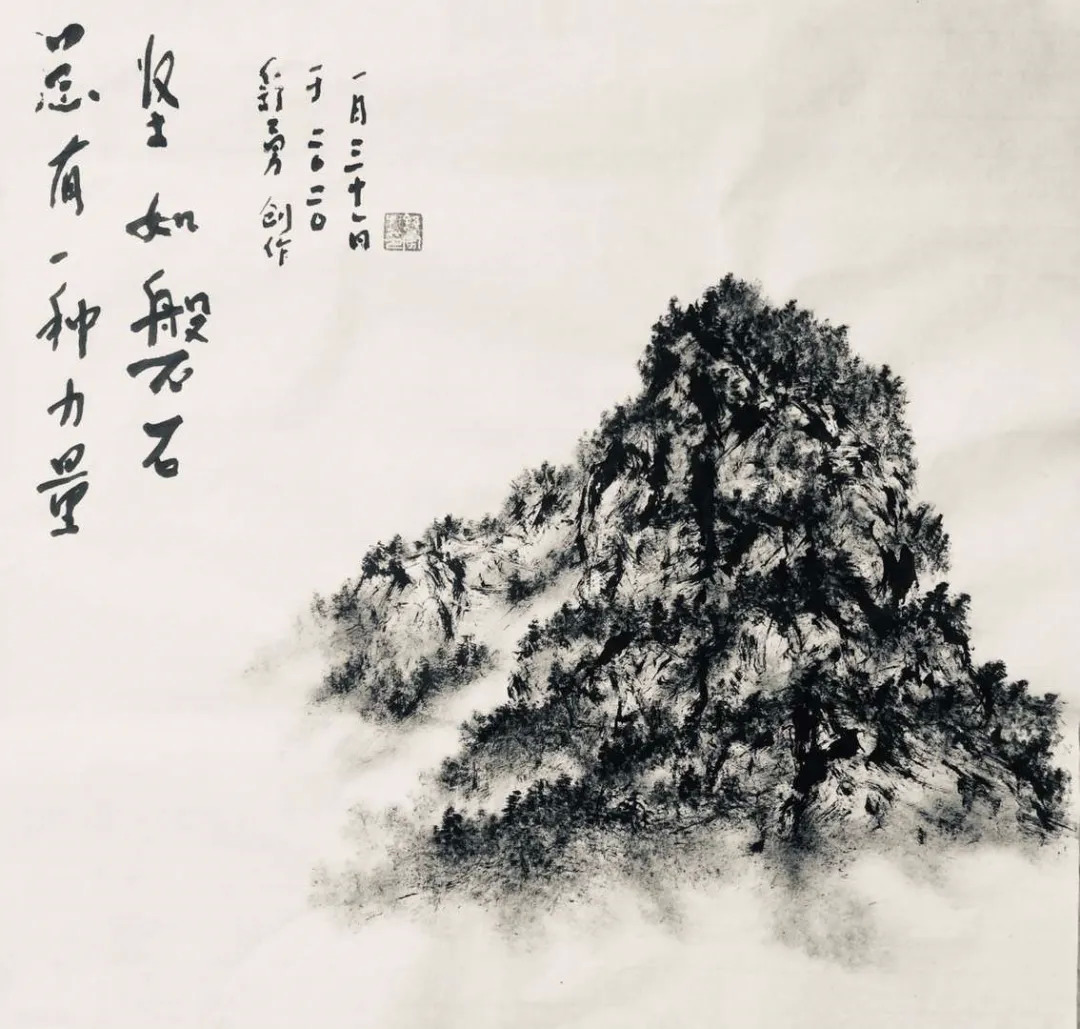 总有一种力量
坚如磐石
舒勇创作
于二〇二〇
一月三十一日